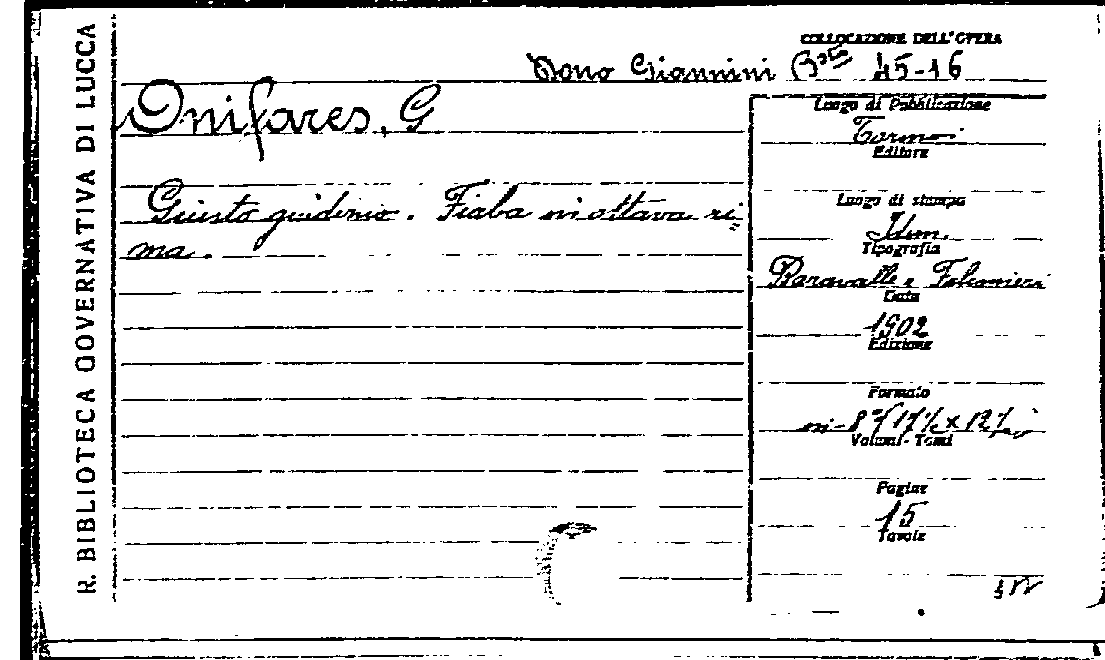 R. BIBLIOTECA GOVERNATIVA DI LUCCA
COLLOCAZIONE DELL'OPERA
Dono Giannini Bta 45-16
Onifares, G
Giusto giudizio. Fiaba in ottava ri=
ma.
Luogo di Pubblicazione
Torino
Editore
Luogo di stampa
Idem.
Tipografia
Baravalle e Falconieri
Data
1902
Edizione
Formato
in-8°
Volumi - Tomi
Pagine
15
Tavole